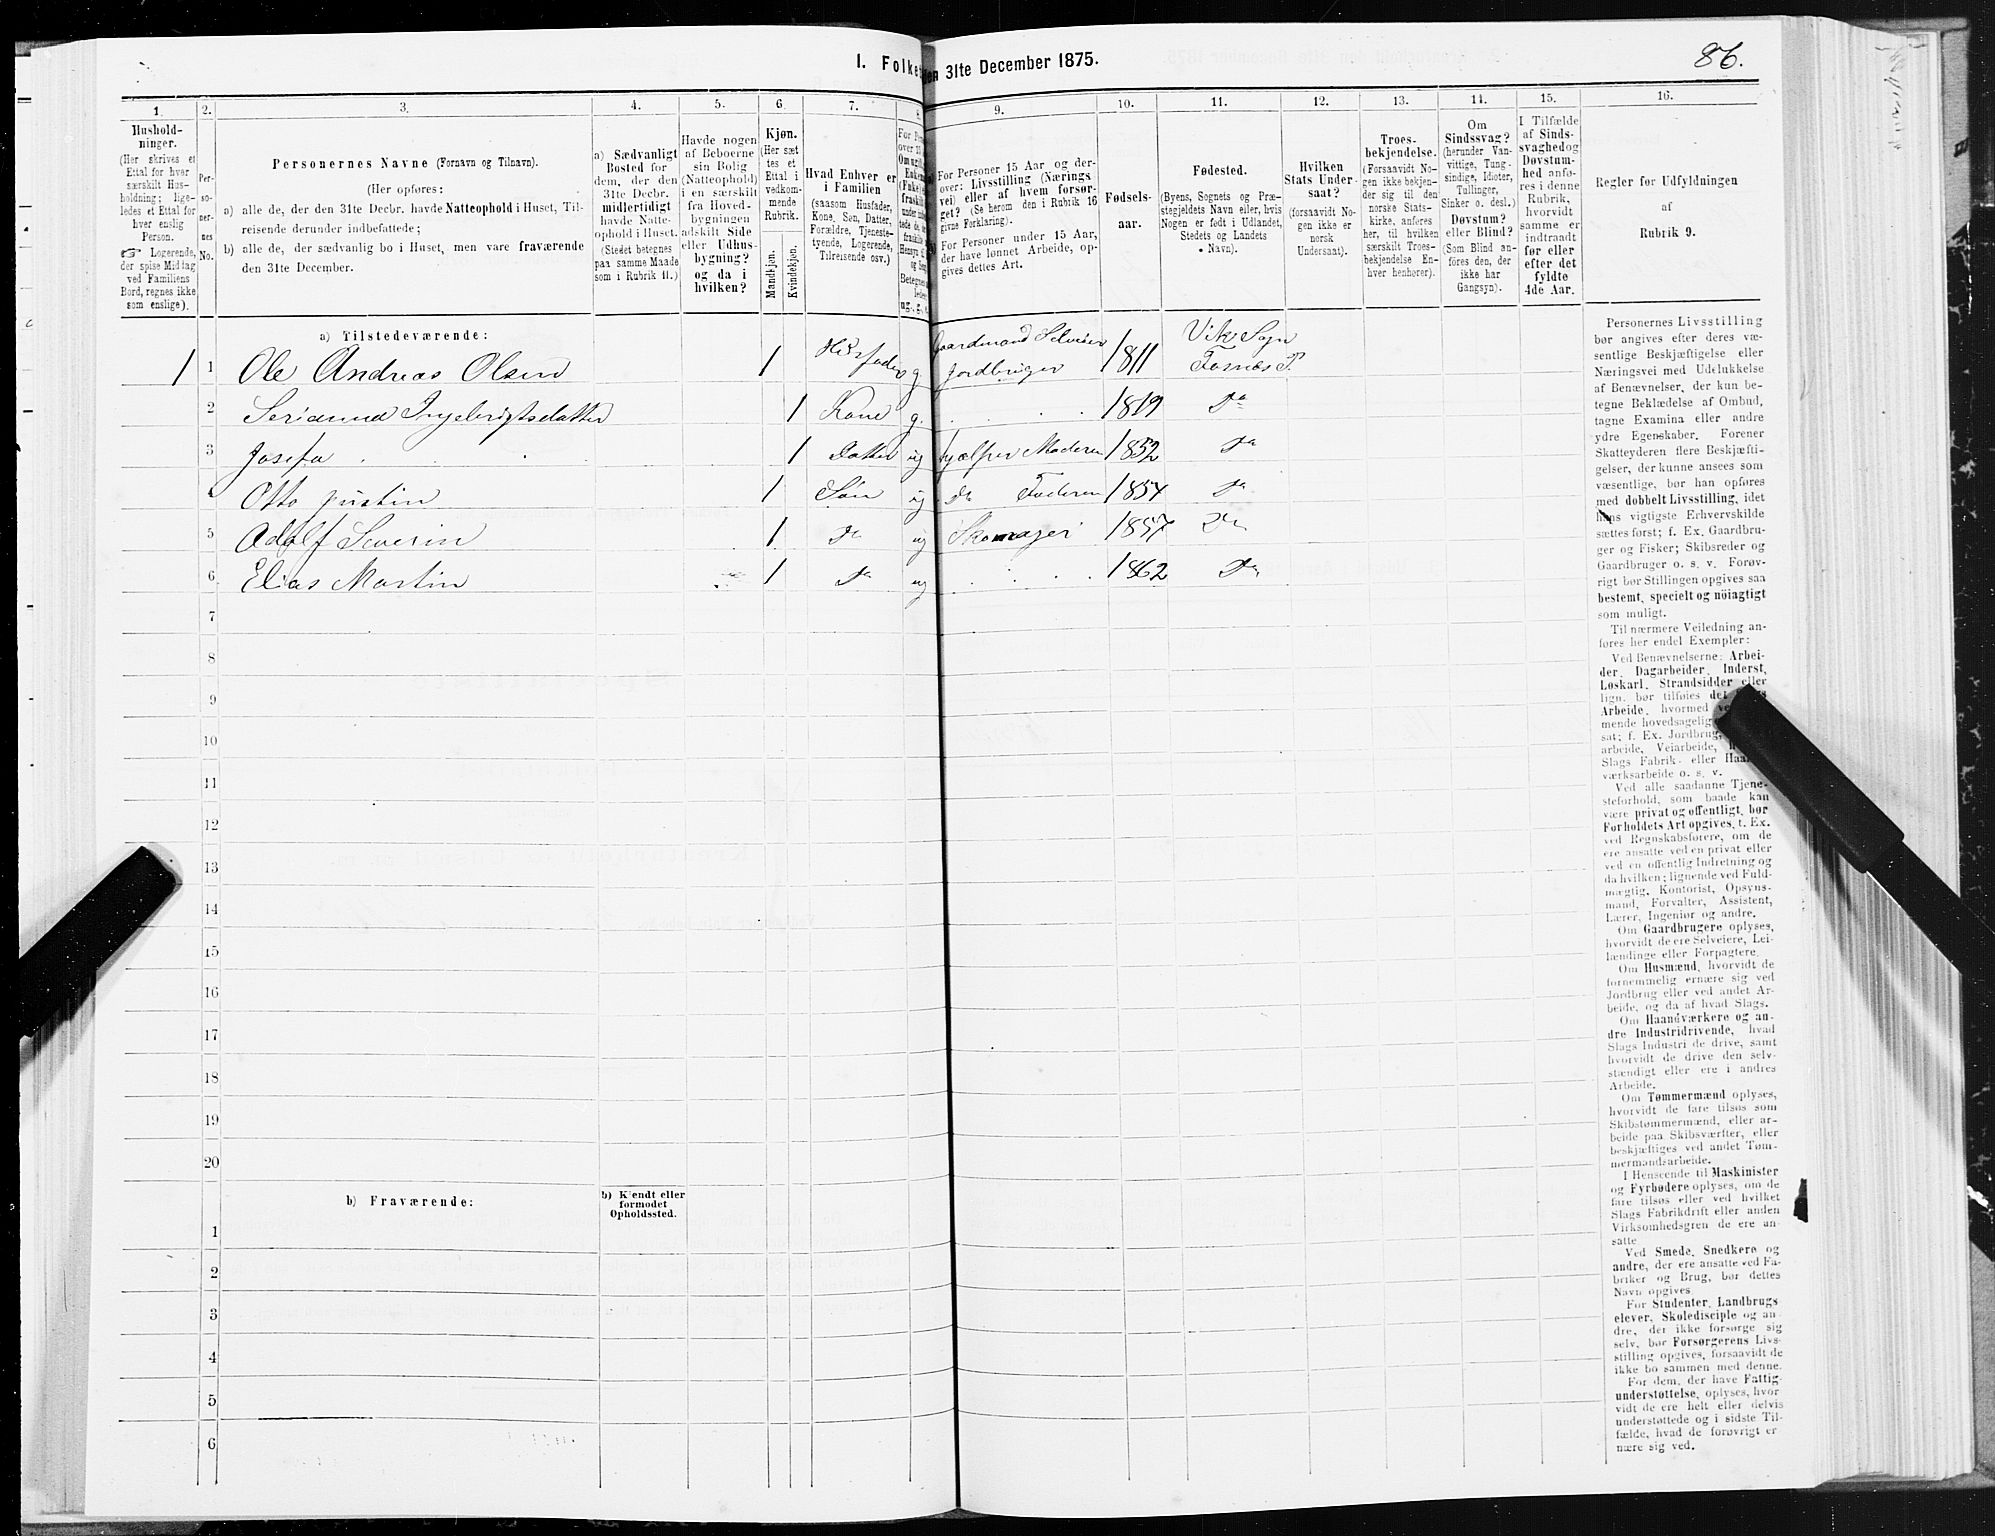 I. Folket
en 31te December 1875.
86.
1.
2.
3.
4.
5.
6.
7.
8.
9.
10.
11.
12.
13.
14.
15.
16.
Hushold-
ninger.
(Her skrives et
Ettal for hver
særskilt Hus-
holdning; lige-
ledes et Ettal for
hver enslig
Person.
☞ Logerende,
der spise Middag
ved Familiens
Bord, regnes ikke
som enslige).
Per-
so-
ner-
nes
No.
Personernes Navne (Fornavn og Tilnavn).
(Her opføres:
a) alle de, der den 31te Decbr. havde Natteophold i Huset, Til-
reisende derunder indbefattede;
b) alle de, der sædvanlig bo i Huset, men vare fraværende
den 31te December.
a) Sædvanligt
Bosted for
dem, der den
31te Decbr.
midlertidigt
havde Natte-
ophold i Huset.
(Stedet betegnes
paa samme Maade
som i Rubrik 11.)
Havde nogen
af Beboerne
sin Bolig
(Natteophold)
i en særskilt
fra Hoved-
bygningen
adskilt Side
eller Udhus-
bygning?
og da i
hvilken?
Kjøn.
(Her sæt
tes et
Ettal i
vedkom-
mende
Rubrik.
Mandkjøn.
Kvindekjøn.
Hvad Enhver er
i Familien
(saasom Husfader,
Kone, Søn, Datter,
Forældre, Tjeneste-
tyende, Logerende,
Tilreisende osv.)
For Personer 15 Aar og der-
over: Livsstilling (Nærings
vei) eller af hvem forsør-
get? (Se herom den i Rubrik 16
givne Forklaring).
For Personer under 15 Aar,
der have lønnet Arbeide, op-
gives dettes Art.
Fødsels-
aar.
Fødested.
(Byens, Sognets og Præ-
stegjeldets Navn eller, hvis
Nogen er født i Udlandet,
Stedets og Landets
Navn).
Hvilken
Stats Under-
saat?
(forsaavidt No-
gen ikke er
norsk
Undersaat).
Troes-
bekjendelse.
(Forsaavidt No-
gen ikke bekjen-
der sig til den
norske Stats-
kirke, anføres
her, til hvilken
særskilt Troes-
bekjendelse En-
hver henhører).
Om
Sindssvag?
(herunder Van-
vittige, Tung-
sindige, Idioter,
Tullinger,
Sinker o. desl.)
Døvstum?
eller Blind?
(Som Blind an-
føres den, der
ikke har
Gangsyn).
I Tilfælde
af Sinds-
svaghed og
Døvstum-
hed anfø-
res i denne
Rubrik,
hvorvidt
samme er
indtraadt
før eller
efter det
fyldte
4de Aar.
Regler for Udfyldningen
af
Rubrik 9.
a) Tilstedeværende:
1 1 Ole Andreas Olsen 1 Husfader g. Gaardmand Selveier Jordbruger 1811 Vik Sogn Fosnæs P.
2 Serianna Ingebrigtsdatter 1 Kone g. 1819 Do
3 Josefa 1 Datter ug hjælper Moderen 1852 Do
4 Otto Justin 1 Søn ug Do Faderen 1854 Do
5 Adolf Severin 1 Do ug Skomager 1857 Do
6 Elias Martin 1 Do ug 1862 Do
7
8
9
10
11
12
13
14
15
16
17
18
19
20
b) Fraværende:
b) Kjendt eller
formodet
Opholdssted.
1
2
3
4
5
6
Personernes Livsstilling
bør angives efter deres væ-
sentlige Beskjæftigelse eller
Næringsvei med Udelukkelse
af Benævnelser, der kun be-
tegne Beklædelse af Ombud,
tagne Examina eller andre
ydre Egenskaber. Forener
Skatteyderen flere Beskjæfti-
gelser, der kunne ansees som
væsentlige, bør han opføres
med dobbelt Livsstilling, idet
hans vigtigste Erhvervskilde
sættes først; f. Ex. Gaardbru-
ger og Fisker; Skibsreder og
Gaardbruger o. s. v. Forøv-
rigt bør Stillingen opgives saa
bestemt, specielt og nöiagtigt
som muligt.
Til nærmere Veiledning an-
føres her endel Exempler:
Ved Benævnelserne: Arbei-
der, Dagarbeider, Inderst,
Løskarl, Strandsidder eller
lign. bør tilføies det
Arbeide, hvormed
mende hovedsagelig
sat; f. Ex. Jordbrug,
arbeide, Veiarbeide,
Slags Fabrik- eller Haand-
værksarbeide o. s. v.
Ved alle saadanne Tjene-
steforhold, som baade kan
være privat og offentligt, bør
Forholdets Art opgives, t. Ex.
ved Regnskabsførere, om de
ere ansatte ved en privat eller
ved en offentlig Indretning og
da hvilken; lignende ved Fuld-
mægtig, Kontorist, Opsyns-
mand, Forvalter, Assistent,
Lærer, Ingeniør og andre.
Om Gaardbrugere oplyses,
hvorvidt de ere Selveiere, Lei-
lændinge eller Forpagtere.
Om Husmænd, hvorvidt de
fornemmelig ernære sig ved
Jordbrug eller ved andet Ar-
beide, og da af hvad Slags.
Om Haandværkere og an-
dre Industridrivende, hvad
Slags Industri de drive, samt
hvorvidt de drive den selv-
stændigt eller ere i andres
Arbeide.
Om Tømmermænd oplyses,
hvorvidt de fare tilsøs som
Skibstømmermænd, eller ar-
beide paa Skibsværfter, eller
beskjæftiges ved andet Tøm-
mermandsarbeide.
I Henseende til Maskinister
og Fyrbødere oplyses, om de
fare tilsøs eller ved hvilket
Slags Fabrikdrift eller anden
Virksomhedsgren de ere an-
satte
Ved Smede, Snedkere og
andre, der ere ansatte ved Fa-
briker og Brug, bør dettes
Navn opgives
For Studenter, Landbrugs
elever, Skoledisciple og an-
dre, der ikke forsørge sig
selv, bør Forsørgerens Livs-
stilling opgives, forsaavidt de
ikke bo sammen med denne.
For dem, der have Fattig-
understøttelse, oplyses, hvor
vidt de ere helt eller delvis
understøttede og i sidste Til-
fælde, hvad de forøvrigt er
nære sig ved.